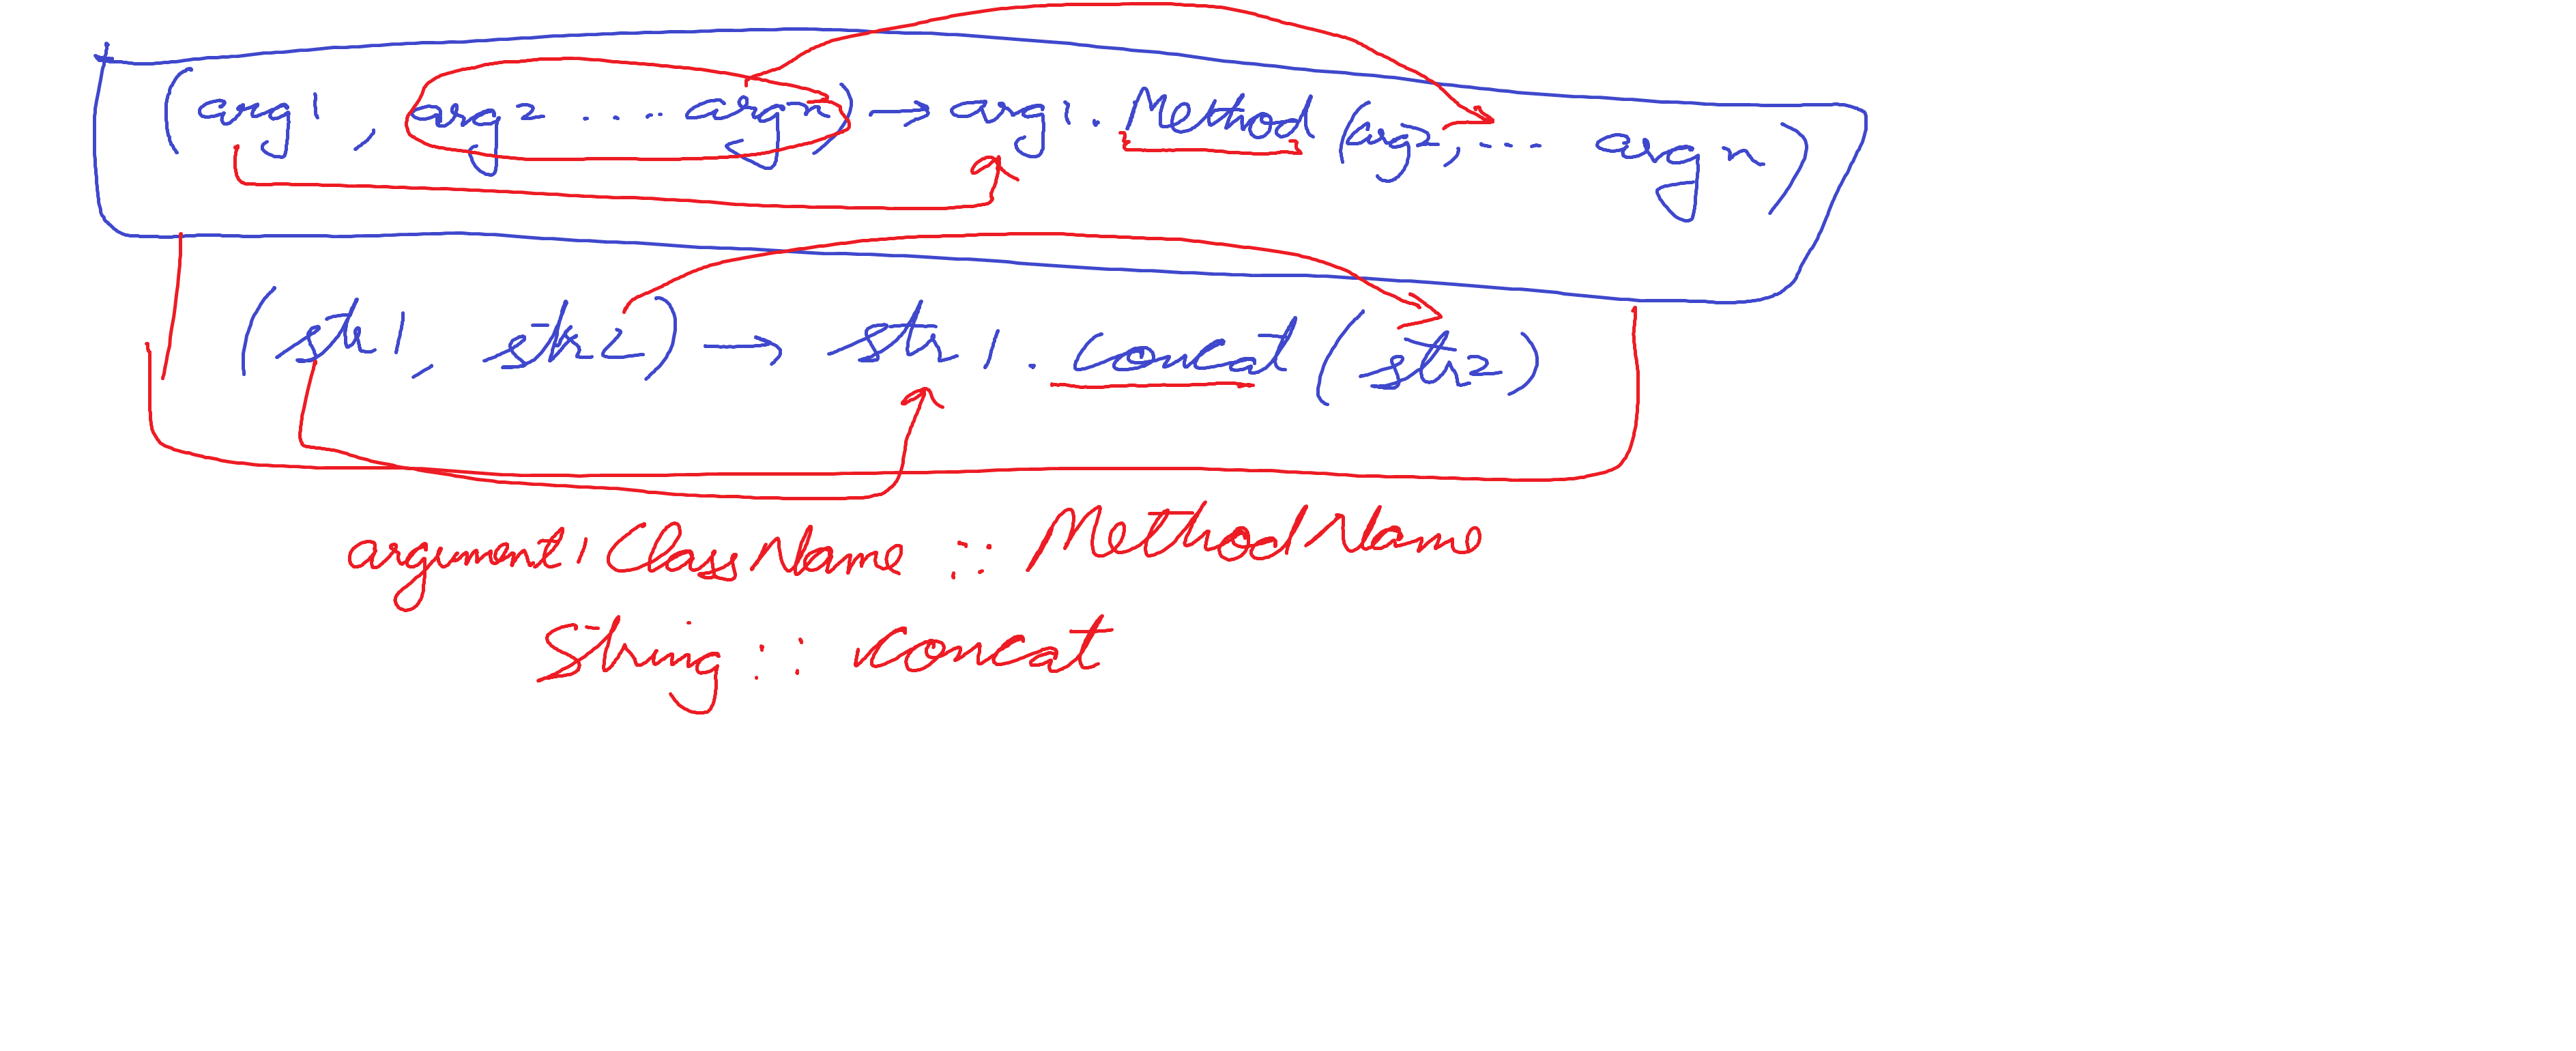 (arg1, arg2 .... argn) → arg1.Method(arg2, ... argn)
(str1, str2) → str1.concat(str2)
argument1ClassName :: MethodName
String :: concat